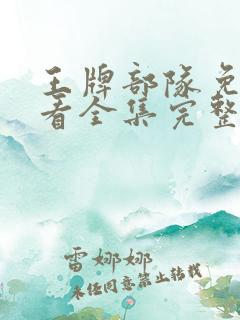 王牌部队免
看全集完整
雷娜娜
未经同意禁止转载